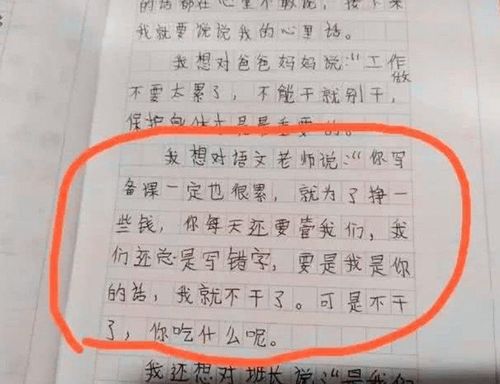 的话都在心里不敢说，接下来
我就要说说我的心里话。
我想对爸爸妈妈说："工作
做
不要太累了，不能干就别干，
保护身体才是最重要的。
我想对语文老师说："你写
备课一定也很累，就为了挣一
些钱，你每天还要管我们，我
们还总是写错字，要是我是你
的话，我就不干了。可是不干
了，你吃什么呢。
我还想对班长说："是我们